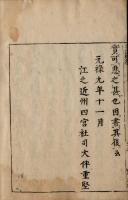 實可悲之甚也因書其後云
元祿九年十一月
江之近州四宮社司大伴重堅